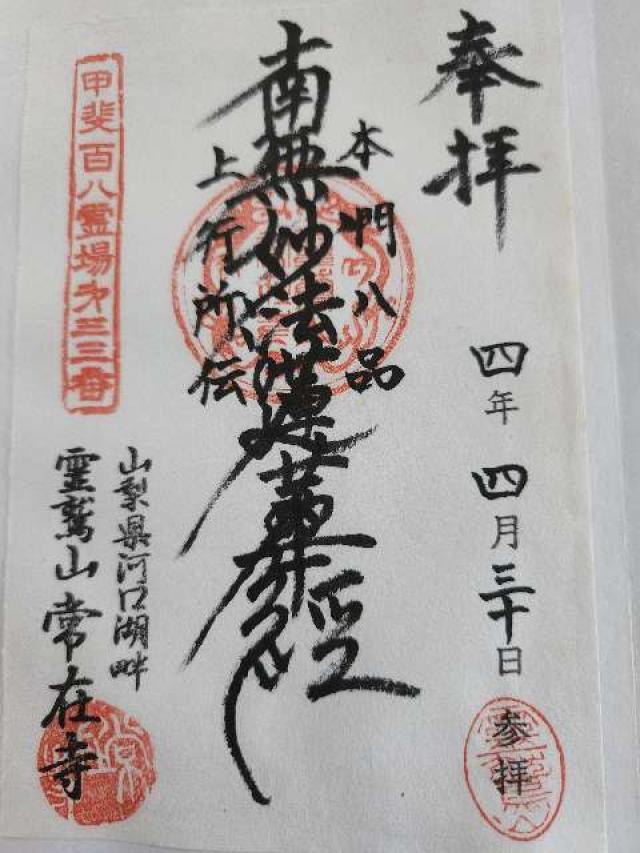 奉拝
四年 四月三十日
参拝
本門八品
南無妙法蓮華経
上行所伝
甲斐百八霊場第三三番
山梨県河口湖畔
霊鷲山常在寺